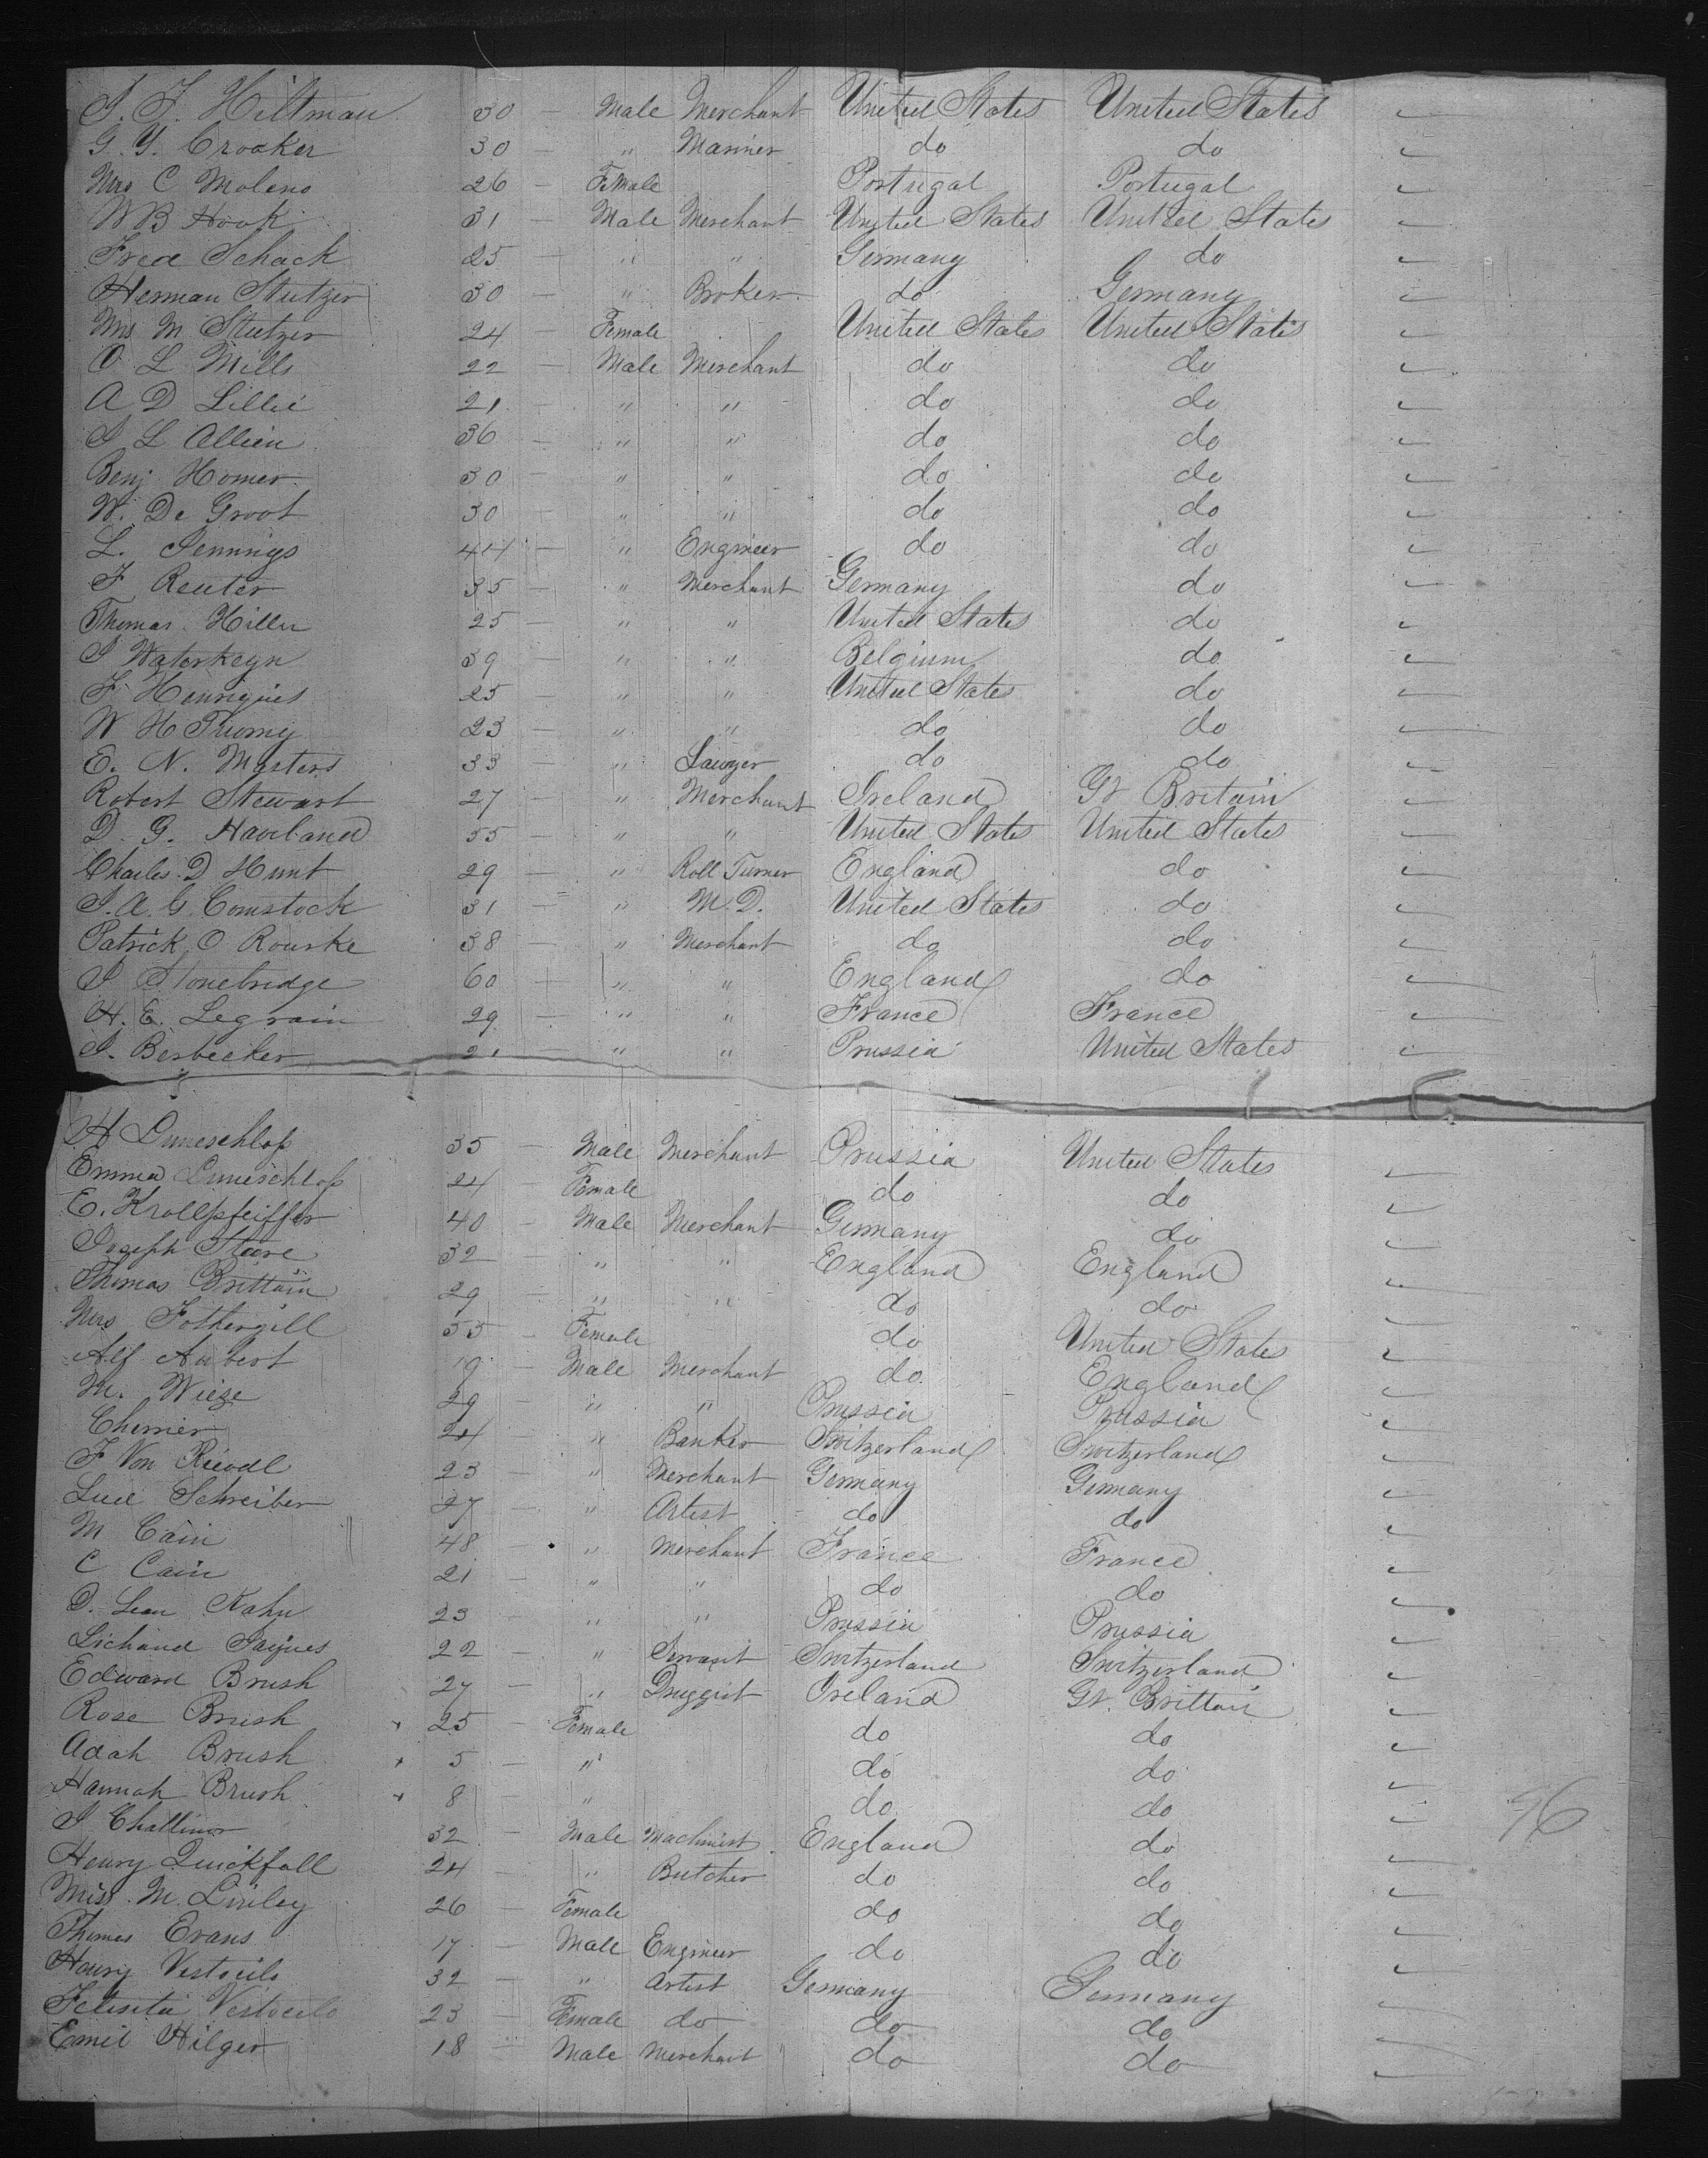 J. F. Hiltman 30 — Male Merchant United States United States
G. Y. Crooker 30 — " Mariner do do
Mrs C Moleno 26 — Female Portugal Portugal
W B Hook 31 — Male Merchant United States United States
Fred Schack 25 — " " Germany do
Herman Stutzer 30 — " Broker do Germany
Mrs M Stutzer 24 — Female United States United States
O L Mills 22 — Male Merchant do do
A D Lillie 21 — " " do do
J L Allien 36 — " " do do
Benj Homer 30 — " " do do
W. De Groot 30 — " " do do
L. Jennings 44 — " Engineer do do
F Reuter 35 — " Merchant Germany do
Thomas Hiller 25 — " " United States do
J Waterkeyn 39 — " " Belgium do
F Henriques 25 — " " United States do
W H Tuomy 23 — " " do do
E. N. Masters 33 — " Lawyer do do
Robert Stewart 27 — " Merchant Ireland Gt Britain
D. G. Haviland 55 — " " United States United States
Charles D Hunt 29 — " Roll Turner England do
J. A. G. Comstock 31 — " M. D. United States do
Patrick O Rourke 38 — " Merchant do do
J Stonebridge 60 — " " England do
H. E. Legrain 29 — " " France France
J. Berbecker 21 — " " Prussia United States
H Luneschloss 35 — Male Merchant Prussia United States
Emma Luneschloss 24 — Female do do
E. Krollpfeiffer 40 — Male Merchant Germany do
Joseph Steere 32 " " England England
Thomas Brittain 29 — " " do do
Mrs Fothergill 55 — Female do United States
Alf Aubert 19 — Male Merchant do England
M. Wiese 29 — " " Prussia Prussia
Cherrier 24 — " Banker Switzerland Switzerland
F Von 23 — " Merchant Germany Germany
Schreiber 27 — " Artist do do
M Cain 48 " Merchant France France
C Cain 21 — " " do do
D. Leon Kahn 23 — " " Prussia Prussia
Jaques 22 — " Servant Switzerland Switzerland
Edward Brush 27 — " Druggist Ireland Gt. Brittain
Rose Brush 25 — Female do do
Adah Brush 5 — " do do
Hannah Brush 8 — " do do
J Challinor 32 — Male Machinist England do
Henry Quickfall 24 — " Butcher do do
Miss M. Linley 26 — Female do do
Thomas Evans 17 — Male Engineer do do
Henry 32 — " Artist Germany Germany
23 — Female do do do
Emil Hilger 18 — Male Merchant do do
96